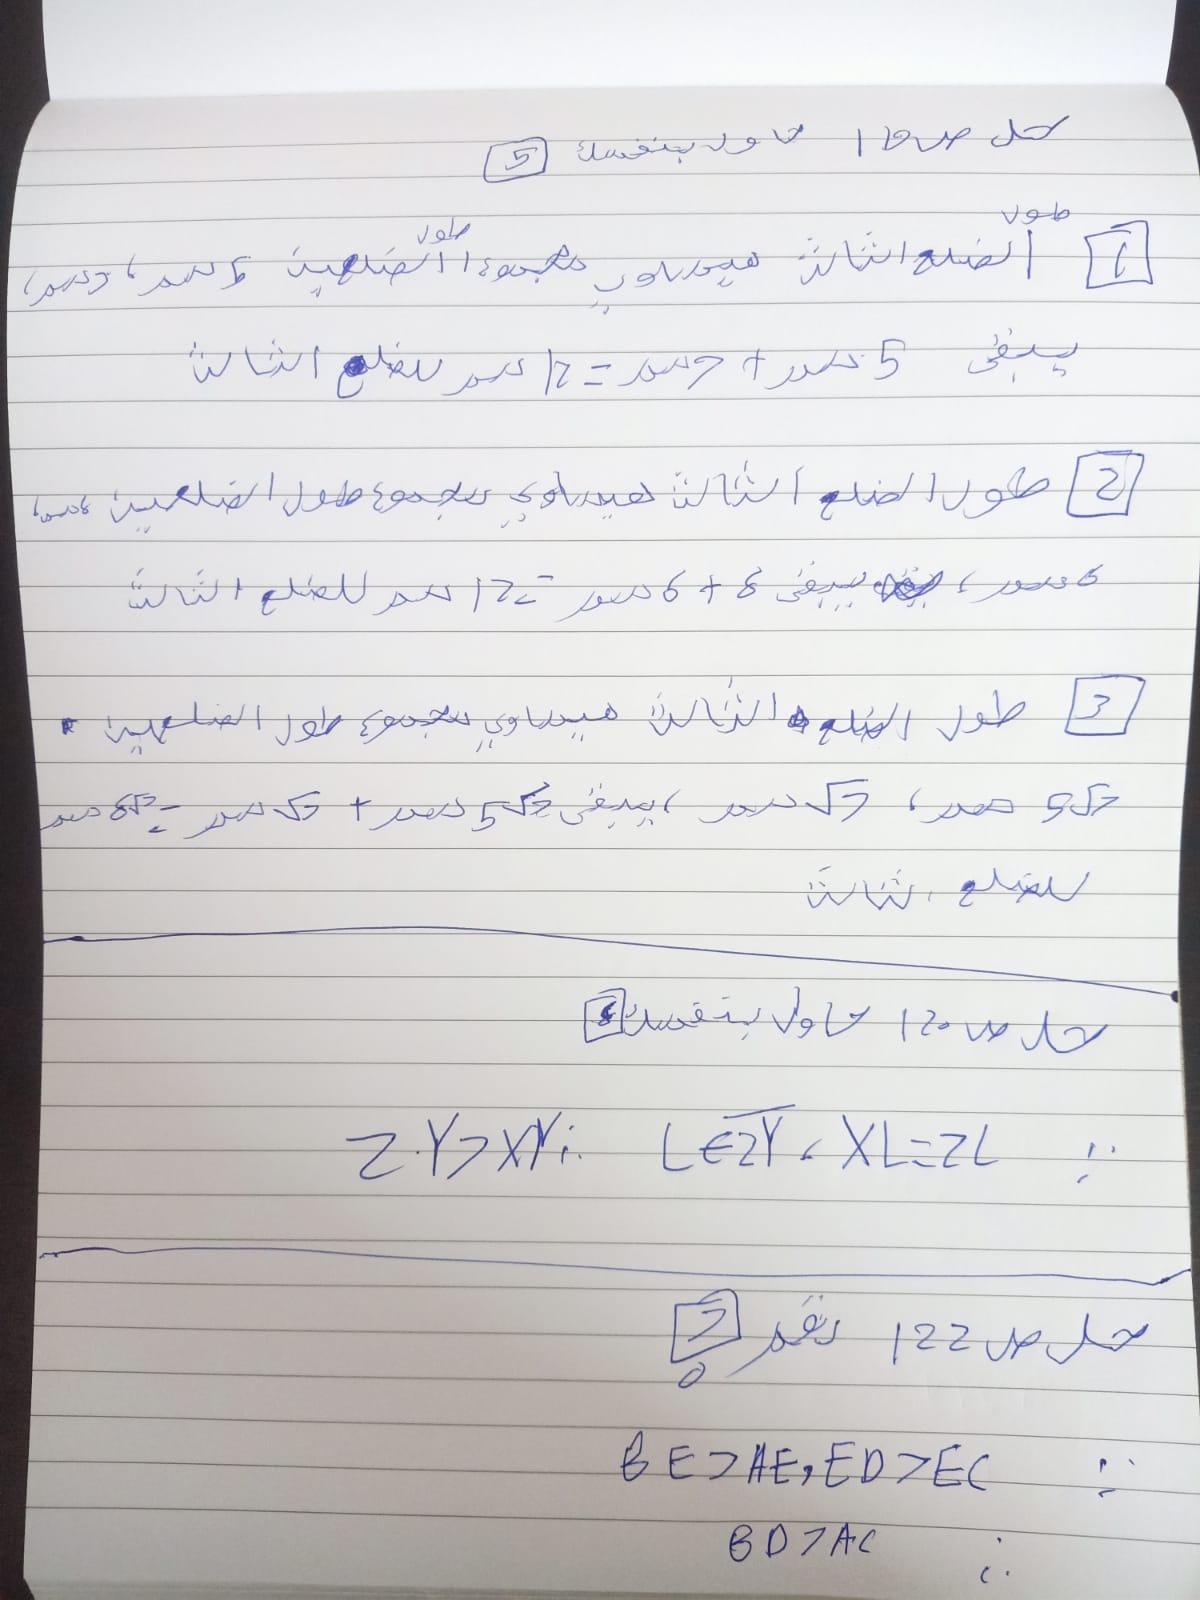 حل ص 119 حاول بنفسك 5
1 طول الضلع الثالث هيساوي مجموع طول الضلعين 5 سم، 7 سم،
يبقى 5 سم + 7 سم = 12 سم للضلع الثالث
2 طول الضلع الثالث هيساوي مجموع طول الضلعين 6 سم،
6 سم، يبقى 6 + 6 سم = 12 سم للضلع الثالث
3 طول الضلع الثالث هيساوي مجموع طول الضلعين
5√3 سم، √3 سم، يبقى 5√3 سم + √3 سم = 6√3 سم
للضلع الثالث
حل ص 120 حاول بنفسك 6
∵ XL=ZL ، L∈ZY ∴ ZY>XY
حل ص 122 رقم 3
∵ BE>AE, ED>EC
∴ BD>AC